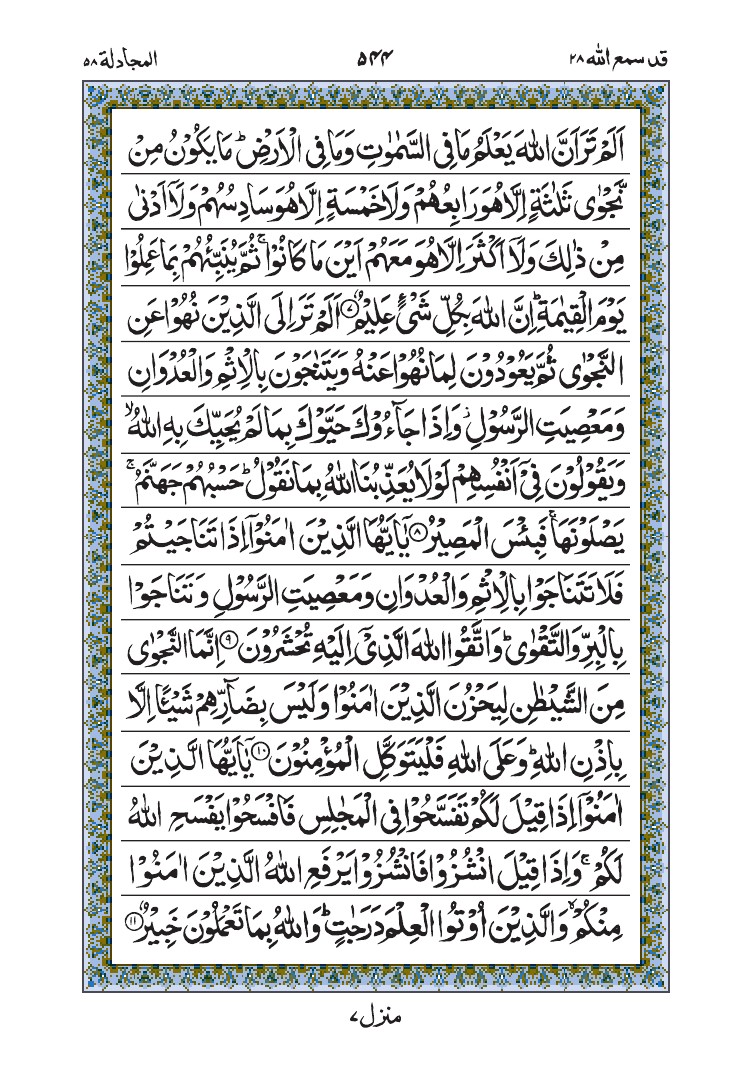 قد سمع الله ٢٨ ۵۴۴ المجادلة ۵۸
اَلَمْ تَرَ اَنَّ اللّٰهَ يَعْلَمُ مَا فِى السَّمٰوٰتِ وَمَا فِى الْاَرْضِ ؕ مَا يَكُوْنُ مِنْ
نَّجْوٰى ثَلٰثَةٍ اِلَّا هُوَ رَابِعُهُمْ وَلَا خَمْسَةٍ اِلَّا هُوَ سَادِسُهُمْ وَلَاۤ اَدْنٰى
مِنْ ذٰلِكَ وَلَاۤ اَكْثَرَ اِلَّا هُوَ مَعَهُمْ اَيْنَ مَا كَانُوْا ۚ ثُمَّ يُنَبِّئُهُمْ بِمَا عَمِلُوْا
يَوْمَ الْقِيٰمَةِ ؕ اِنَّ اللّٰهَ بِكُلِّ شَىْءٍ عَلِيْمٌ ۝۷ اَلَمْ تَرَ اِلَى الَّذِيْنَ نُهُوْا عَنِ
النَّجْوٰى ثُمَّ يَعُوْدُوْنَ لِمَا نُهُوْا عَنْهُ وَيَتَنٰجَوْنَ بِالْاِثْمِ وَالْعُدْوَانِ
وَمَعْصِيَتِ الرَّسُوْلِ ؗ وَاِذَا جَآءُوْكَ حَيَّوْكَ بِمَا لَمْ يُحَيِّكَ بِهِ اللّٰهُ ۙ
وَيَقُوْلُوْنَ فِىْۤ اَنْفُسِهِمْ لَوْلَا يُعَذِّبُنَا اللّٰهُ بِمَا نَقُوْلُ ؕ حَسْبُهُمْ جَهَنَّمُ ۚ
يَصْلَوْنَهَا ۚ فَبِئْسَ الْمَصِيْرُ ۝۸ يٰۤاَيُّهَا الَّذِيْنَ اٰمَنُوْۤا اِذَا تَنَاجَيْتُمْ
فَلَا تَتَنَاجَوْا بِالْاِثْمِ وَالْعُدْوَانِ وَمَعْصِيَتِ الرَّسُوْلِ وَتَنَاجَوْا
بِالْبِرِّ وَالتَّقْوٰى ؕ وَاتَّقُوا اللّٰهَ الَّذِىْۤ اِلَيْهِ تُحْشَرُوْنَ ۝۹ اِنَّمَا النَّجْوٰى
مِنَ الشَّيْطٰنِ لِيَحْزُنَ الَّذِيْنَ اٰمَنُوْا وَلَيْسَ بِضَآرِّهِمْ شَيْـًٔا اِلَّا
بِاِذْنِ اللّٰهِ ؕ وَعَلَى اللّٰهِ فَلْيَتَوَكَّلِ الْمُؤْمِنُوْنَ ۝۱۰ يٰۤاَيُّهَا الَّذِيْنَ
اٰمَنُوْۤا اِذَا قِيْلَ لَكُمْ تَفَسَّحُوْا فِى الْمَجٰلِسِ فَافْسَحُوْا يَفْسَحِ اللّٰهُ
لَكُمْ ۚ وَاِذَا قِيْلَ انْشُزُوْا فَانْشُزُوْا يَرْفَعِ اللّٰهُ الَّذِيْنَ اٰمَنُوْا
مِنْكُمْ ۙ وَالَّذِيْنَ اُوْتُوا الْعِلْمَ دَرَجٰتٍ ؕ وَاللّٰهُ بِمَا تَعْمَلُوْنَ خَبِيْرٌ ۝۱۱
منزل ۷